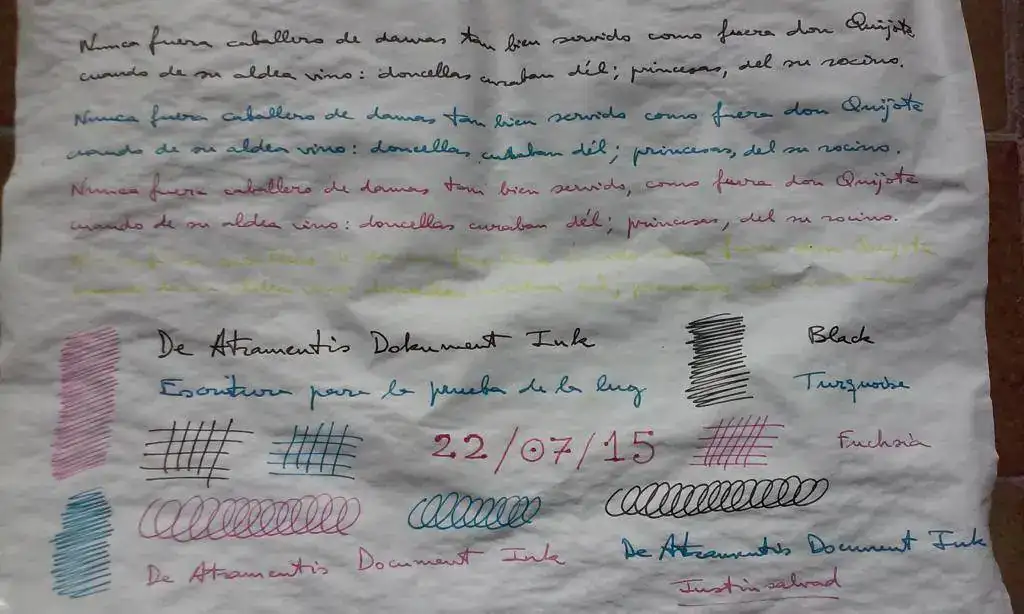 Nunca fuera caballero de damas tan bien servido como fuera don Quijote
cuando de su aldea vino: doncellas curaban dél; princesas, del su rocino.
Nunca fuera caballero de damas tan bien servido como fuera don Quijote
cuando de su aldea vino: doncellas curaban dél; princesas, del su rocino.
Nunca fuera caballero de damas tan bien servido, como fuera don Quijote
cuando de su aldea vino: doncellas curaban dél; princesas, del su rocino.
fuera don Quijote
De Atramentis Dokument Ink
Black
Escritura para la prueba de la luz
Turquoise
22/07/15
Fuchsia
De Atramentis Document Ink
De Atramentis Document Ink
Justinsalvad